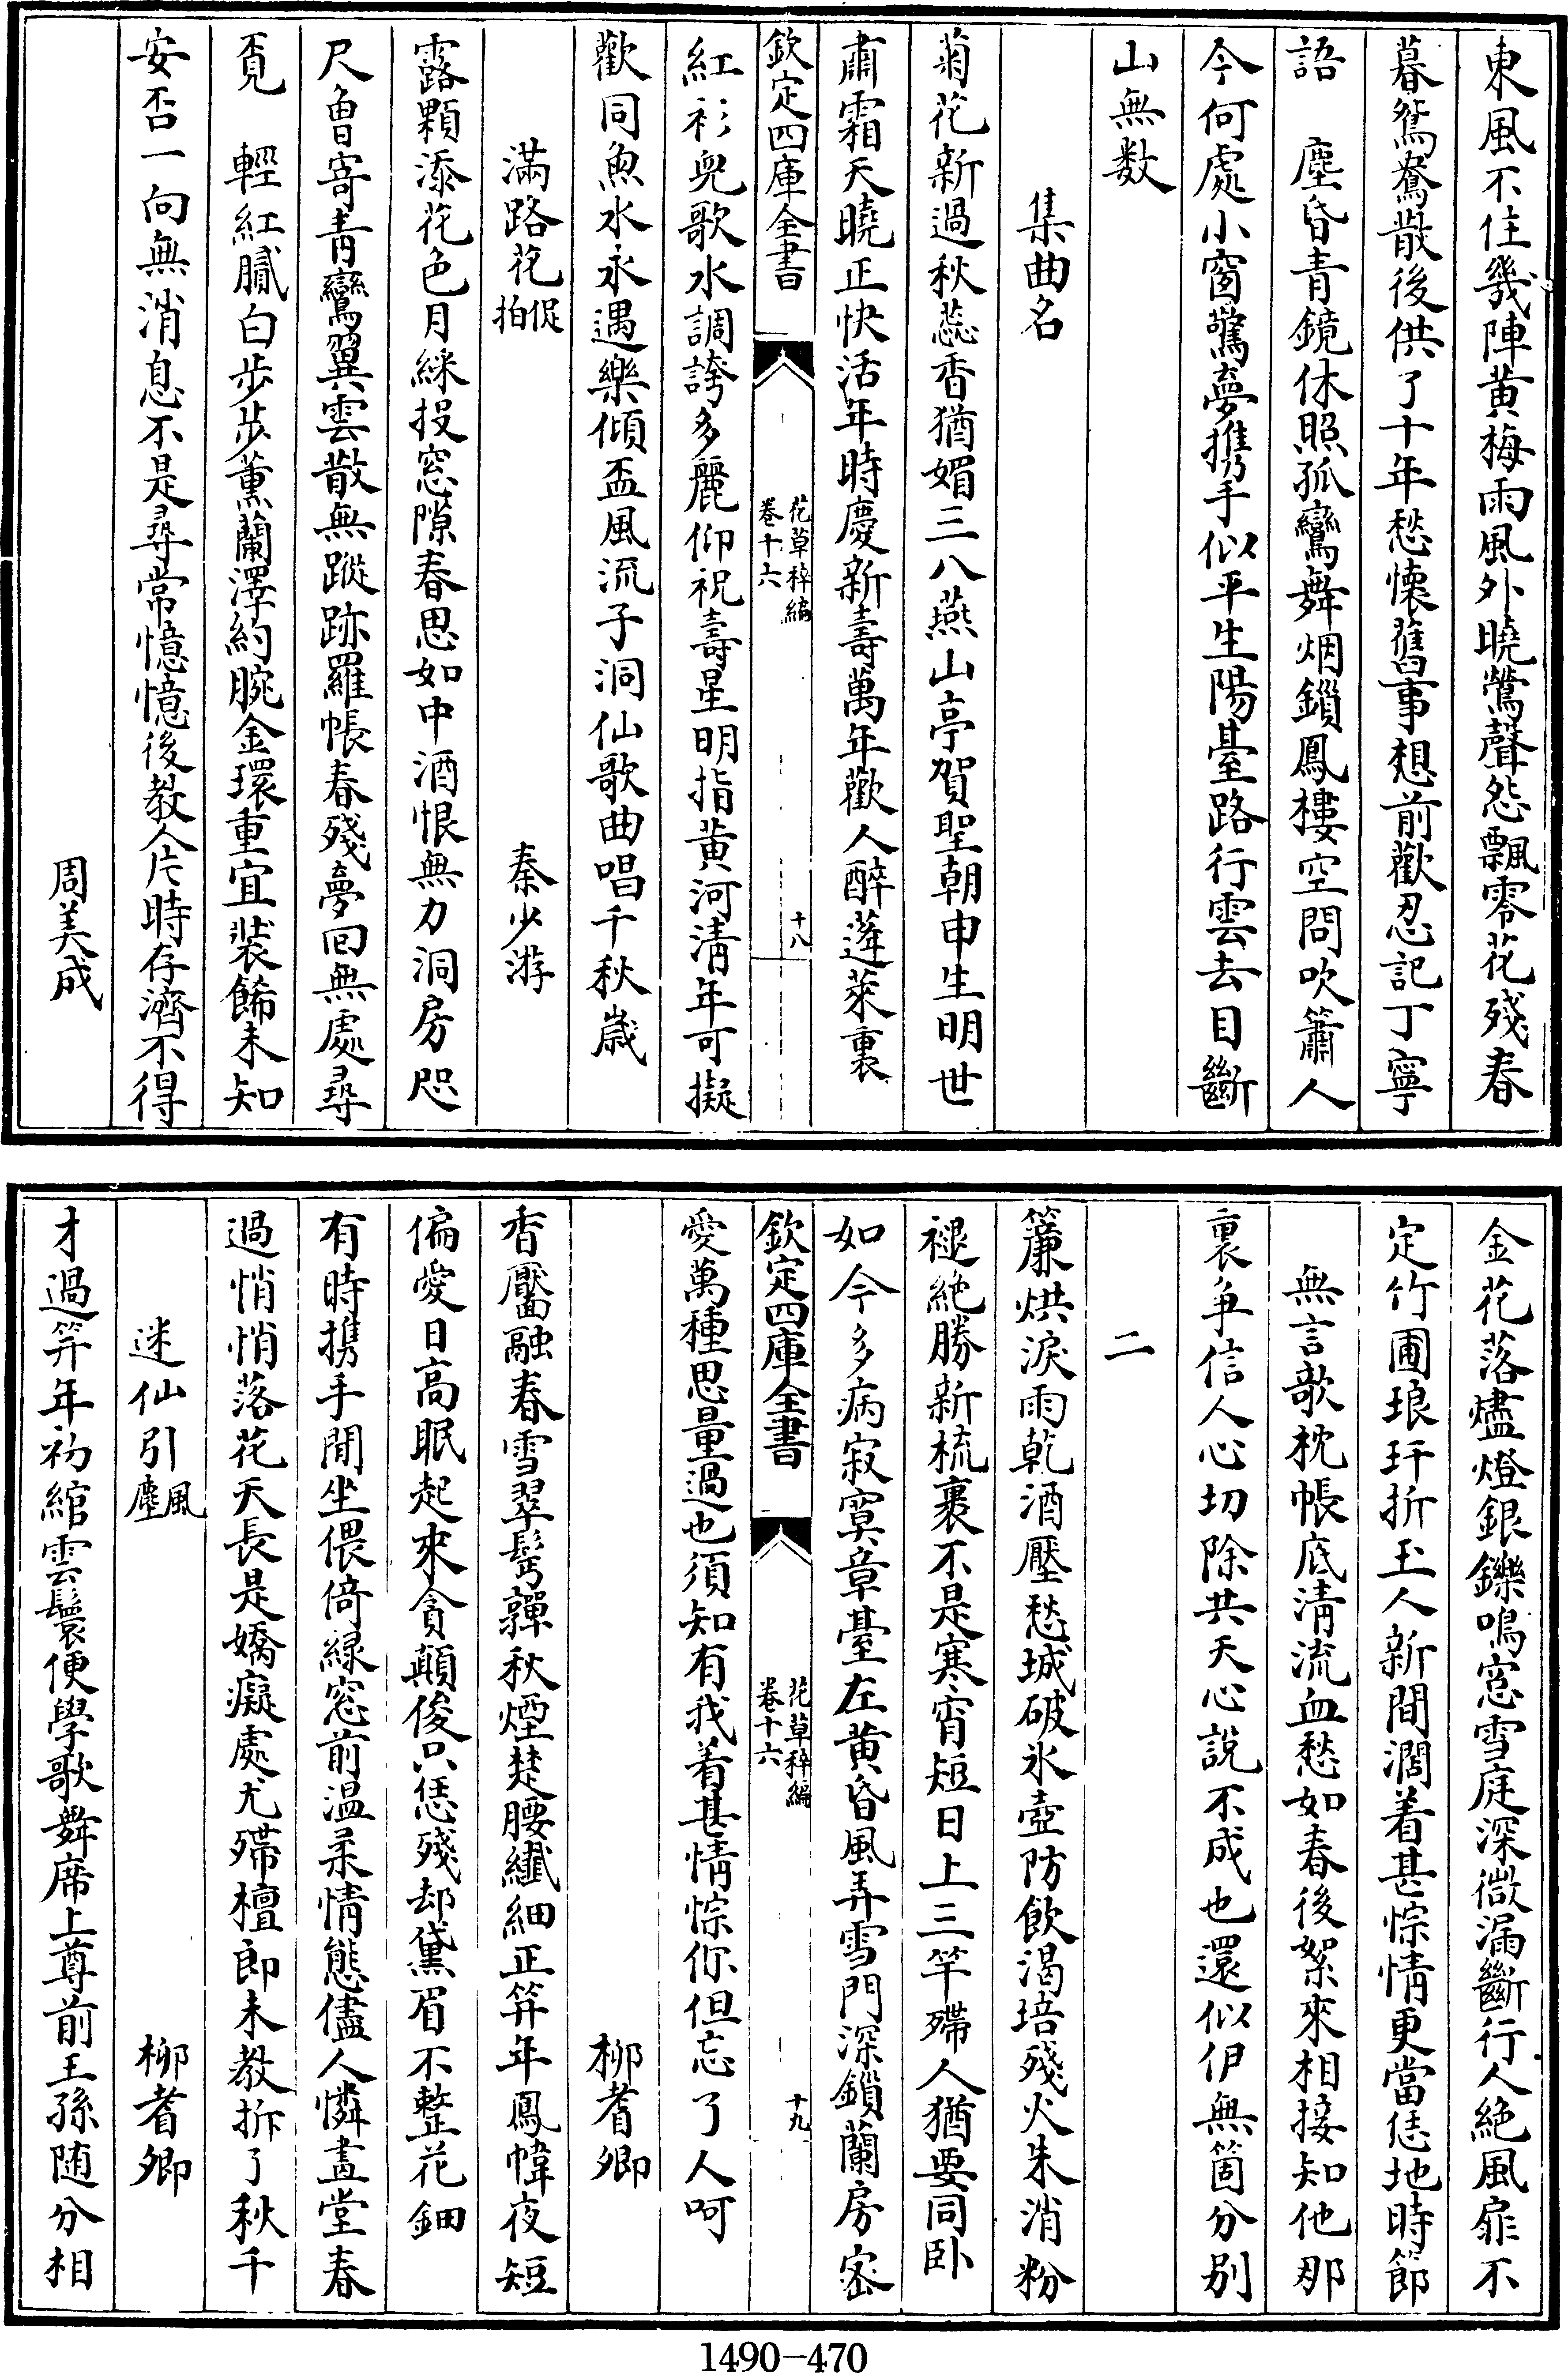 東風不住幾陣黄梅雨風外曉鶯聲怨飄零花殘春
暮鴛鴦散後供了十年愁懷舊事想前歡忍記丁寧
語　塵昏青鏡休照孤鸞舞烟鎖鳳樓空問吹簫人
今何處小窗驚夢携手似平生陽臺路行雲去目斷
山無数
集曲名
菊花新過秋蕊香猶媚三八燕山亭賀聖朝申生明世
肅霜天曉正快活年時慶新壽萬年歡人醉蓬萊裏
欽定四庫全書
花草稡編
卷十六
十八
紅衫兒歌水調誇多麗仰祝壽星明指黄河清年可擬
歡同魚水永遇樂傾盃風流子洞仙歌曲唱千秋歲
滿路花促拍
秦少游
露顆添花色月綵投窓隙春思如中酒恨無力洞房咫
尺曾寄青鸞翼雲散無蹤跡羅帳春殘夢回無處尋
覔　輕紅膩白步步薰蘭澤約腕金環重宜裝餙未知
安否一向無消息不是尋常憶憶後教人片時存濟不得
周美成
金花落燼燈銀鑠鳴窓雪庭深微漏斷行人絶風扉不
定竹圃琅玕折玉人新間濶着甚悰情更當恁地時節
無言欹枕帳底清流血愁如春後絮來相接知他那
裏争信人心切除共天心說不成也還似伊無箇分别
二
簾烘淚雨乾酒壓愁城破氷壺防飲渴培殘火朱消粉
褪絶勝新梳裹不是寒宵短日上三竿殢人猶要同卧
如今多病寂寞章臺左黄昏風弄雪門深鎖蘭房密
欽定四庫全書
花草稡編
卷十六
十九
愛萬種思量過也須知有我着甚情悰你但忘了人呵
柳耆卿
香靨融春雪翠髩嚲秋煙楚腰纖細正笄年鳳幃夜短
偏愛日高眠起來貪顛俊只恁殘却黛眉不整花鈿
有時携手閒坐偎倚緑窓前温柔情態儘人憐畫堂春
過悄悄落花天長是嬌癡處尤殢檀郎未教拆了秋千
迷仙引風塵
柳耆卿
才過笄年初綰雲鬟便學歌舞席上尊前王孫随分相
1490-470